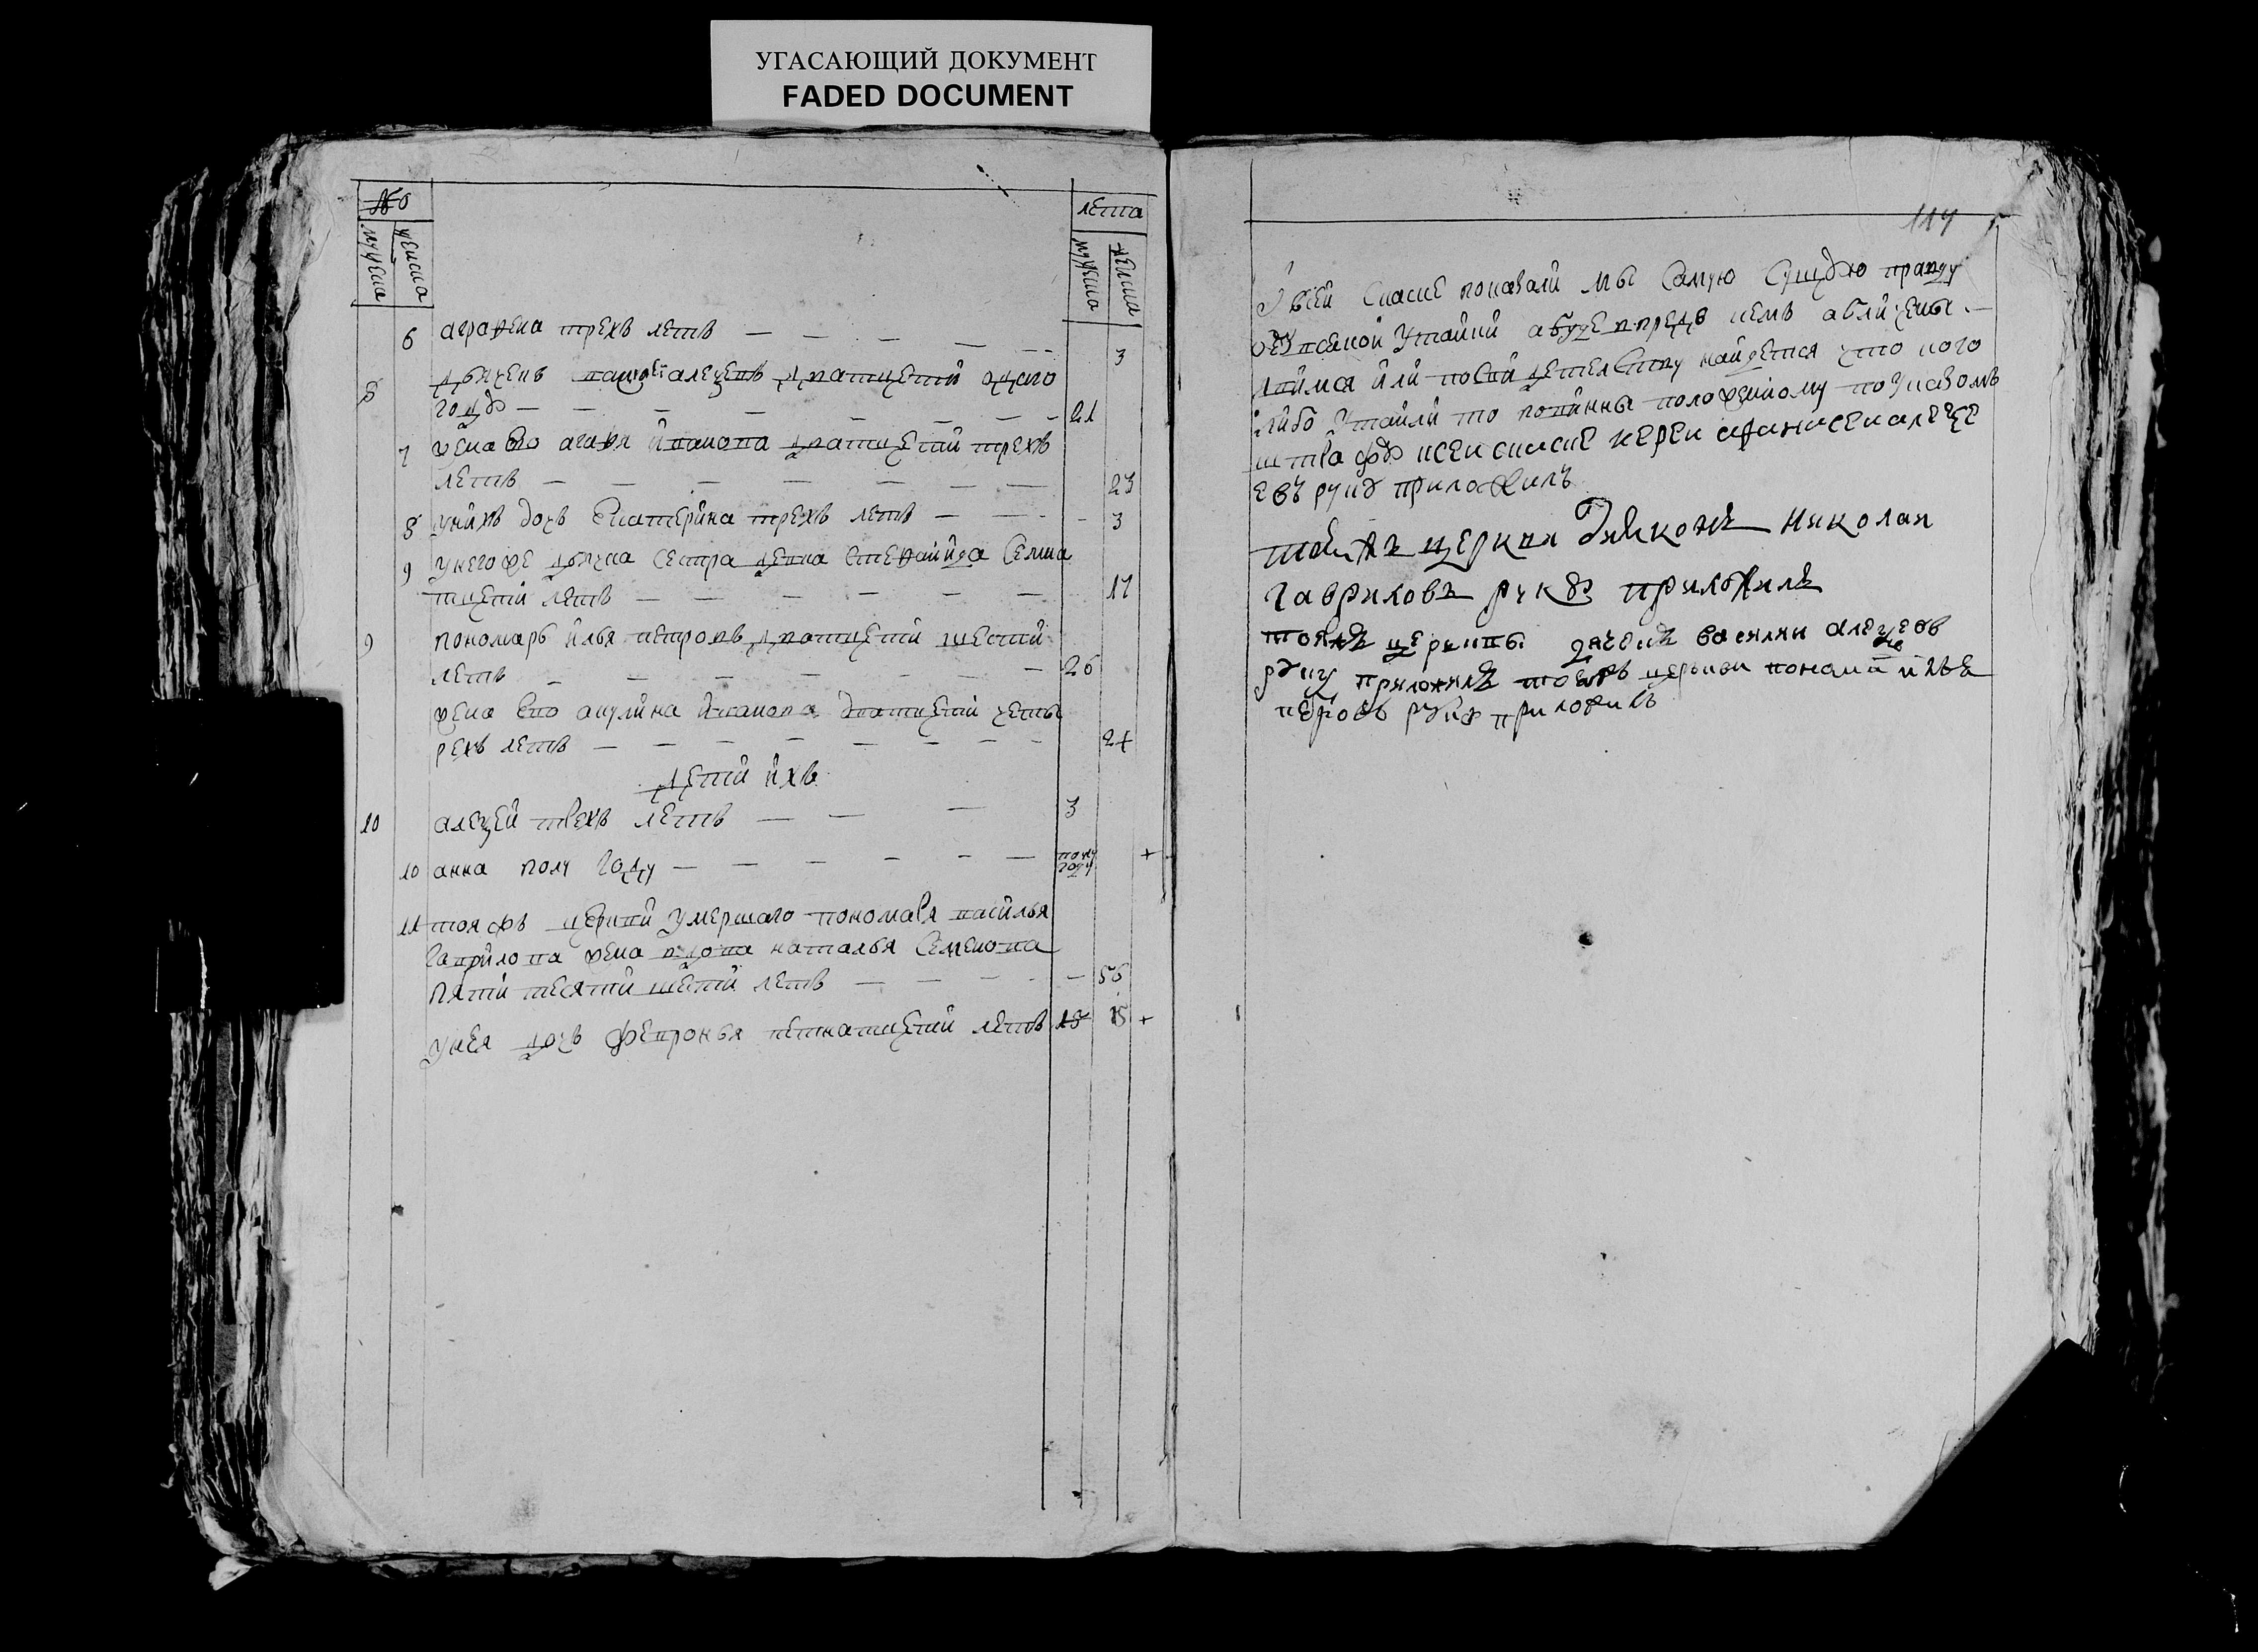 УГАСАЮЩИЙ ДОКУМЕНТ
FADED DOCUMENT
№
мужеска
женска
лета
мужеска
женска
6 аграфена трехъ летъ — — — — — 3
8 дьячекъ василеи алеѯеевъ дватцети одного
году — — — — — — — 21
7 жена ево агафя иванова дватцети трехъ
летъ — — — — — — — 23
8 унихъ дочь екатерина трехъ летъ — — — 3
9 унегоже дьячка сестра девка степанида семна
тцети летъ — — — — — — 17
9 пономарь илья петровъ дватцети шести
летъ — — — — — — — 26
жена ево акулина иванова дватцети четы
рехъ летъ — — — — — — — 24
дети ихъ
10 алеѯей трехъ летъ — — — 3
10 анна полу году — — — — — — полу году +
11 тояжъ церкви умершаго пономаря василья
гаврилова жена вдова наталья семенова
пяти десяти шести летъ — — — — — 56
унея дочь февронья петнатцети летъ 15 15 +
114
В сей скаске показали мы самую сущую правду
безо всякой утайки а буде впредь кемъ абличены
явимся или по свидетелству найдется что кого
либо утаили то повинны положенному по указомъ
штрафу к сеи скаске иереи афанасеи алеѯе
евъ руку приложилъ
тоежъ церкви диаконъ николаи
гавриловъ руку приложилъ
тояжъ церкви дячекъ василии алеѯеев
руку приложилъ тоежъ церкви понамарь илья
петровъ руку приложилъ